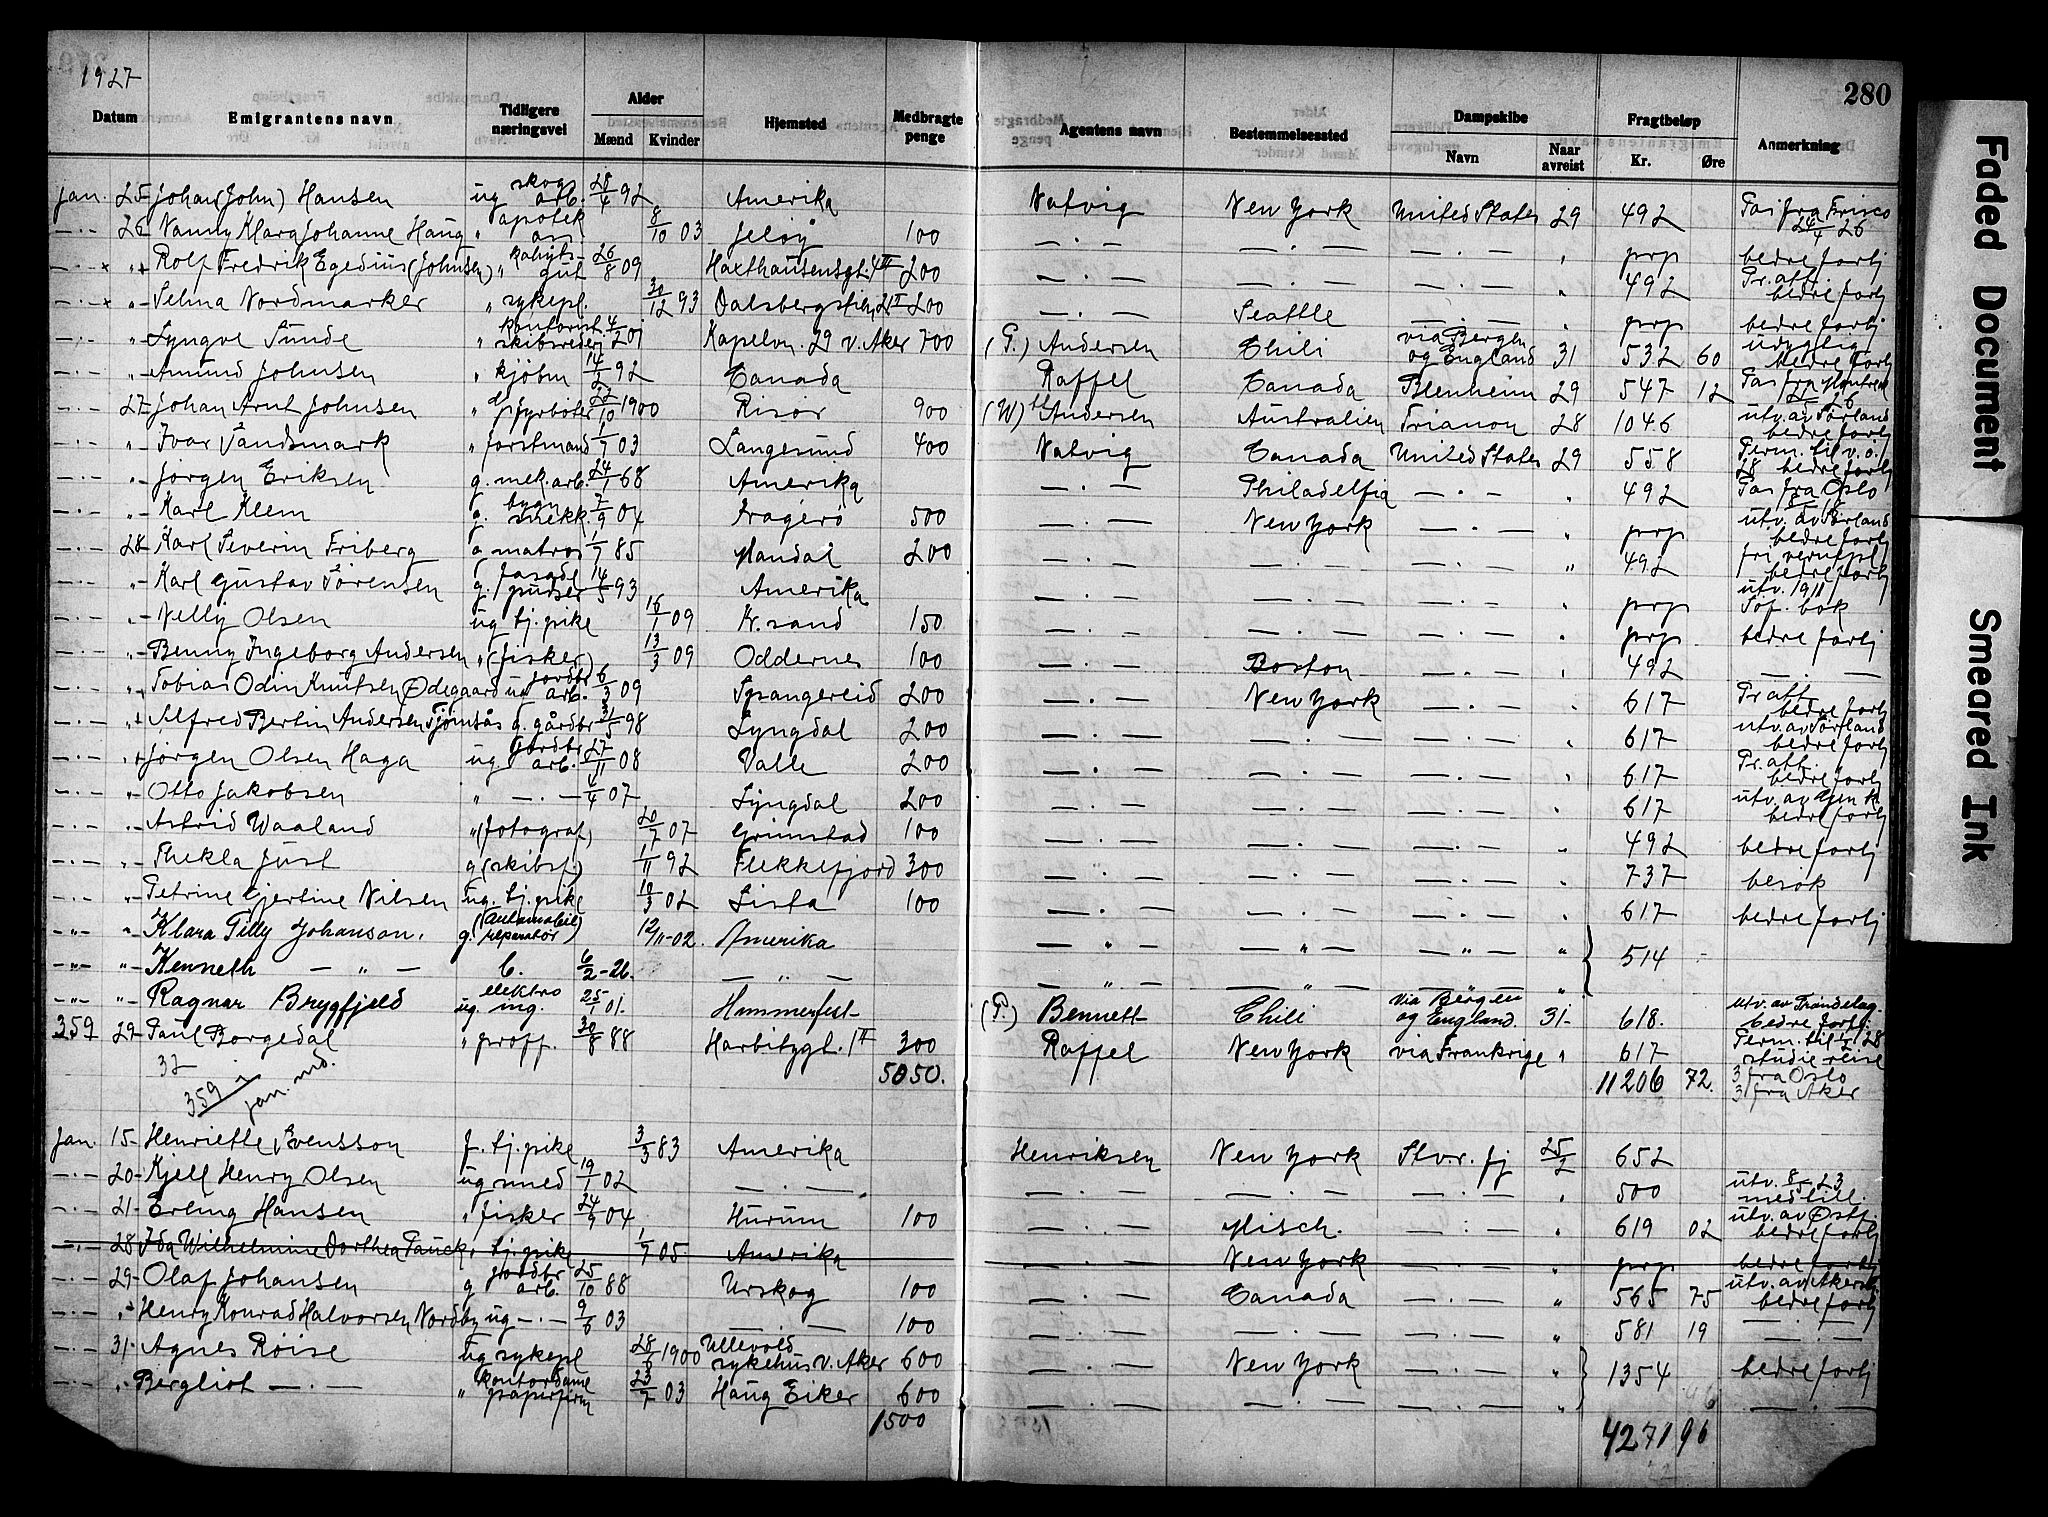 1927
280
Datum | Emigrantens navn | Tidligere næringsvei | Alder Mænd Kvinder | Hjemsted | Medbragte penge | Agentens navn | Bestemmelsessted | Dampskibe Navn | Naar avreist | Fragtbeløp Kr. Øre | Anmerkning
Jan. 25 Johan (John) Hansen ug skogsarb. 28/4 92 Amerika Natvig New York United States 29 492 Pas fra Frisco 24/4 26
— 26 Nanny Klara Johanne Haug " apotek 8/10 03 Jeløy 100 —.— —.— —.— " prp bedre forhj
— x " Rolf Fredrik Egedius (Johnsen) " kahytsgut 26/8 09 Haxthausensgt. 4 III 200 —.— —.— —.— " 492 Pr. att. bedre forhj
— x " Selma Nordmarker " sykepl. 30/12 93 Dalsbergstien 21 I 200 —.— Seattle —.— " prp bedre forhj
" Syngve Sunde " kontorist skibsrederi 4/2 01 Kapelvn. 29 v. Aker 700 (G.) Andersen Chili via Bergen og England 31 532 60 bedre forhj
" Amund Johnsen " kjøbm 14/2 92 Canada Raffel Canada Blenheim 29 547 12 Pas fra Montreal
— 27 Johan Arnt Johnsen " fyrbøter 22/10 1900 Risør 900 (W) Andersen Australien Trianon 28 1046 utv. av Sørland bedre forhj
" Ivar Sandsmark " forstmand 1/7 03 Langesund 400 Natvig Canada United States 29 558 Perm. til v. o. 28 bedre forhj
" Jørgen Eriksen g. mek. arb. 24/1 68 Amerika —.— Philadelfia —.— " 492 Pas fra Oslo
— " Karl Klem g. bygn snekk. 7/9 04 Kragerø 500 —.— New York —.— " prp utv. av Sørland bedre forhj
— 28 Karl Severin Friberg g matros 1/7 85 Mandal 200 —.— —.— —.— " 492 fri vernepl bedre forhj
" Karl Gustav Sørensen g. fasade pudser 14/5 93 Amerika —.— —.— —.— " prp utv. 1911 Søf. bok
— " Nelly Olsen ug tj. pike 16/1 09 Kr. sand 150 —.— —.— —.— " prp bedre forhj
— " Benny Ingeborg Andersen " (fisker) 13/3 09 Oddernes 100 —.— Boston —.— " 492 —.—
— " Tobias Odin Knutsen Ødegaard ug jordbr arb. 6/3 09 Spangereid 200 —.— New York —.— " 617 Pr. att. bedre forhj
— " Alfred Bertin Andersen Tjømsås g. gårdbr 31/5 98 Lyngdal 200 —.— —.— —.— " 617 utv. av Sørland bedre forhj
— " Jørgen Olsen Haga ug. jordbr arb. 27/11 08 Valle 200 —.— —.— —.— " 617 Pr. att. bedre forhj
— " Otto Jakobsen " —.— 4/4 07 Lyngdal 200 —.— —.— —.— " 617 utv. av bedre forhj
— " Astrid Waaland " (fotograf) 20/7 07 Grimstad 100 —.— —.— —.— " 492 bedre forhj
— " Thekla Just g (skibsf) 1/11 92 Flekkefjord 300 — " — —.— —.— " 737 besøk
— " Petrine Gjertine Nilsen ug. tj. pike 10/3 02 Lista 100 —.— —.— —.— " 617 bedre forhj
— " — " Klara Tilly Johanson. g. (automobil reparatør) 12/11-02. Amerika — " — — " — — " — " } 514
— " — " Kenneth — " — b. 6/2-26. — " — — " — — " — — " — "
— " — " Ragnar Brygfjeld ug. elektro ing. 25/1 01. Hammerfest (P.) Bennett Chili via Bergen og England. 31- 618. utv. av Trøndelag bedre forhj.
359 29 Paul Borgedal " proff. 30/8 88 Harbitzgt. 1 II 300 Raffel New York via Frankrige " 617 Perm. til 28 studie reise
32 5050. 11206 72. 3 fra Oslo
359 i jan. md. 3 fra Aker
Jan. 15 Henriette Svensson f. tj. pike 3/3 83 Amerika Henriksen New York Stv. fj 25/2 652
— 20 Kjell Henry Olsen ug smed 19/1 02 —.— —.— —.— —.— " 500 utv. 8/5 23 med till.
— 21 Erling Hansen " fisker 24/9 04 Hurum 100 —.— Misch. —.— " 619 02 utv. av Østf. bedre forhj
— 28 Ida Wilhelmine Dorthea Pauck " tj. pike 1/7 05 Amerika New York " prp bedre forhj
— 29 Olaf Johansen g jordbr arb. 25/10 88 Urskog 100 —.— Canada —.— " 565 75 utv. av Akersh bedre forhj
— " Henry Konrad Halvorsen Nordby ug —.— 9/6 03 —.— 100 —.— —.— —.— " 581 19 —.—
— 31 Agnes Røise ug sykepl 28/8 1900 Ullevold sykehus v. Aker 600 —.— New York —.— " } 1354 bedre forhj
— " Bergliot —.— " kontordame papirfirm 23/7 03 Haug Eiker 600 —.— —.— —.— " —.—
1500 4271 96
Faded Document
Smeared Ink